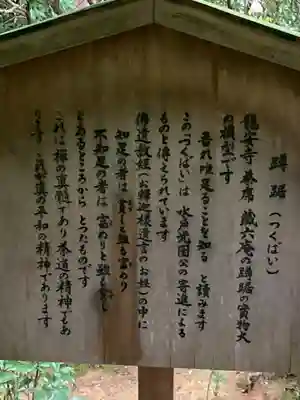 蹲踞（つくばい）
龍安寺 茶席 蔵六庵の蹲踞の實物大
の模型です
吾れ唯足ることを知る と読みます
この「つくばい」は 水戸光圀公の寄進による
ものと傳えられています
佛遺教經（お釋迦様遺言のお経）の中に
知足の者は 貧しと雖も富めり
不知足の者は 富めりと雖も貧し
とあるところから とつたものです
これは禅の真髄であり 茶道の精神であ
ります これが真の平和の精神であります